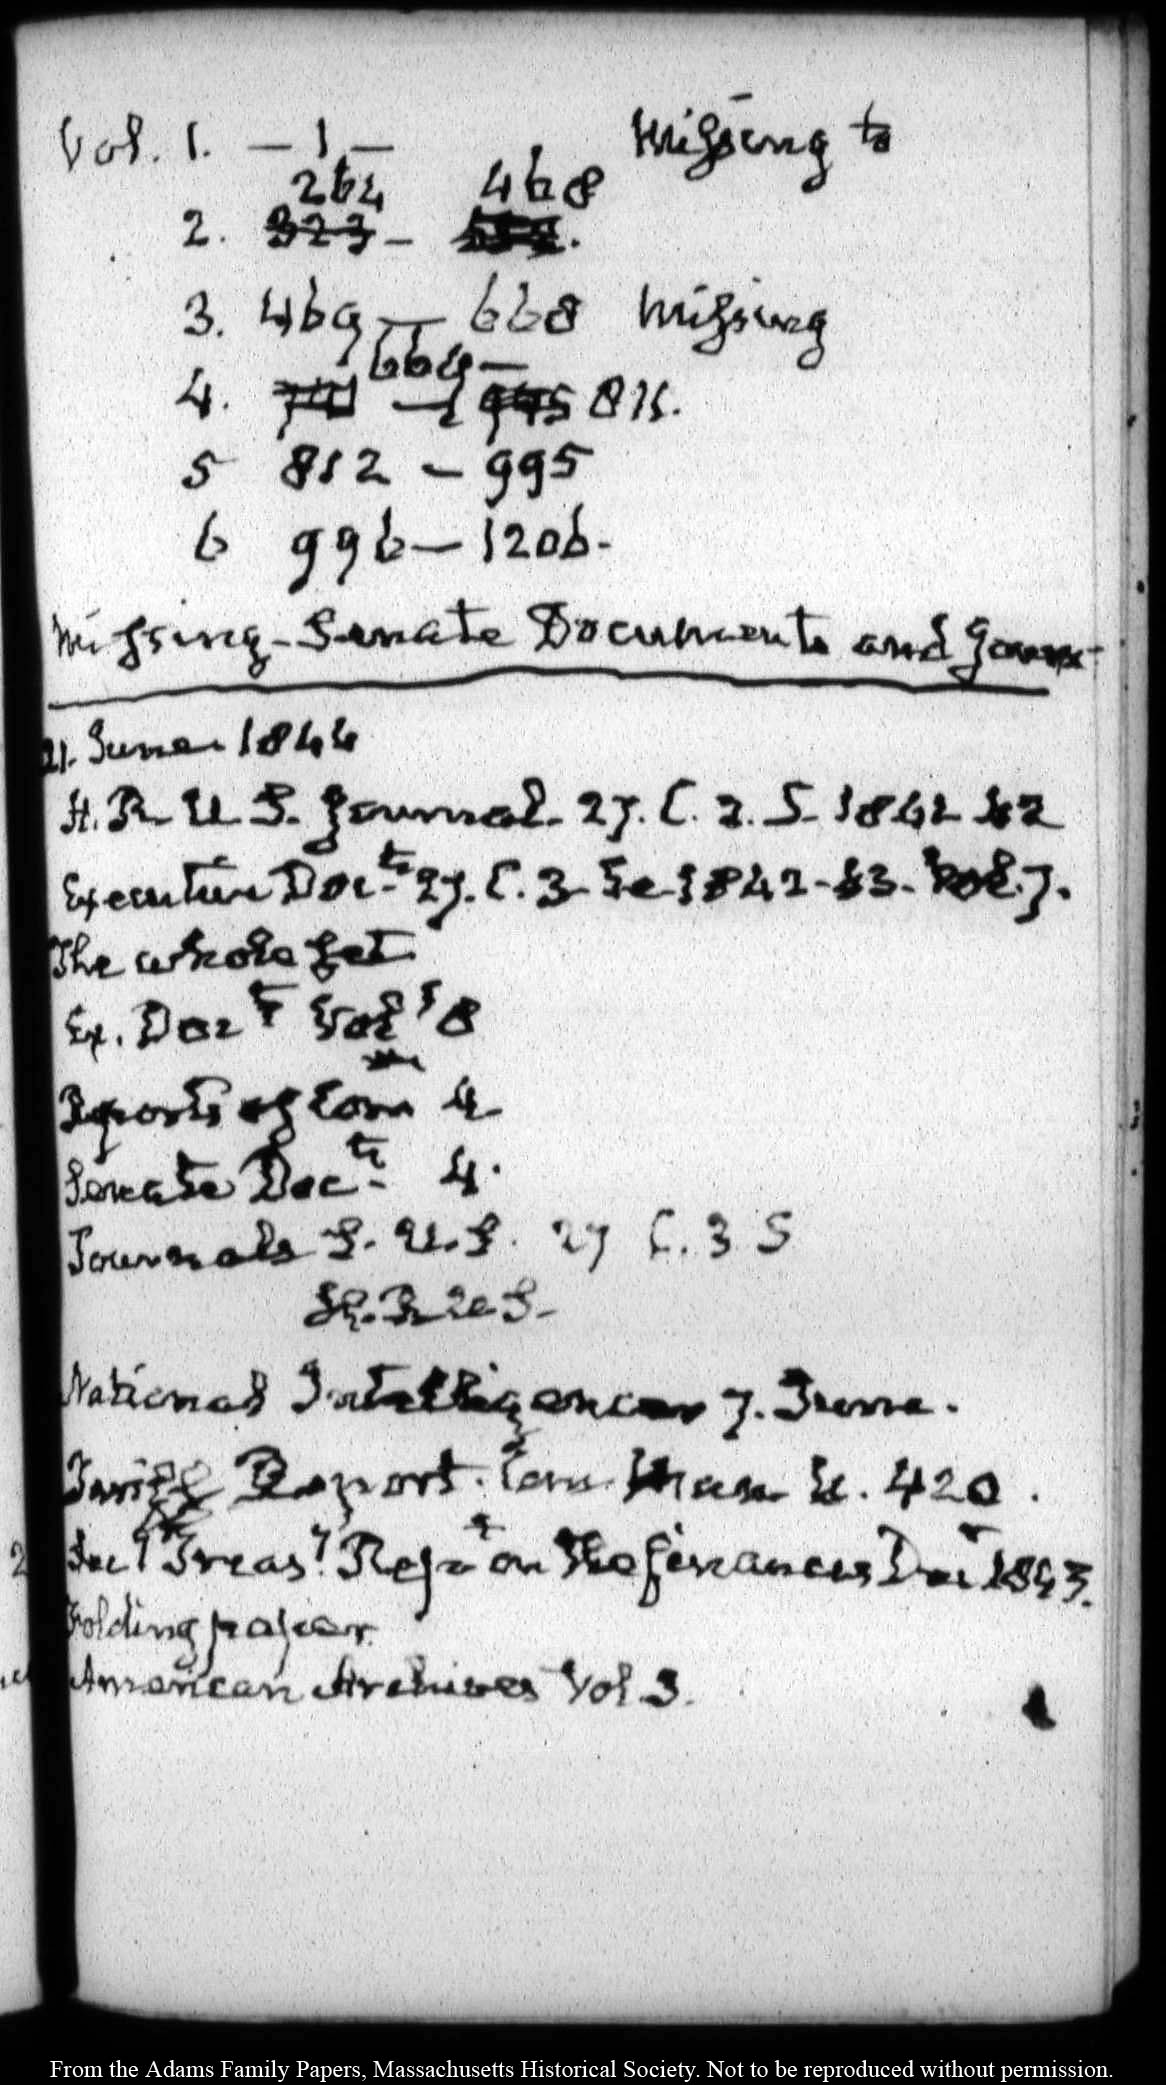 Vol. 1. — 1 — Missing to
264 468
2. 323 – .
3. 469 — 668 Missing
669 —
4. — 995 811.
5 812 – 995
6 996 — 1206.
Missing – Senate Documents and Journ
21. June 1844
H. R. U. S. Journal. 27. C. 2. S. 1841 42
Executive Doc.ts 27. C. 3 Se 1842–43. Vol. 7.
The whole set
Ex. Docts Vols 8
Reports of Com 4
Senate Docts 4.
Journals S. U. S. 27 C. 3 S
H. R. U. S.
National Intelligencer 7. June.
Tariff Report. Com Man U. 420.
Secy Treasy Rept on the finances Decr 1843.
Folding paper
American Archives Vol 3.
From the Adams Family Papers, Massachusetts Historical Society. Not to be reproduced without permission.